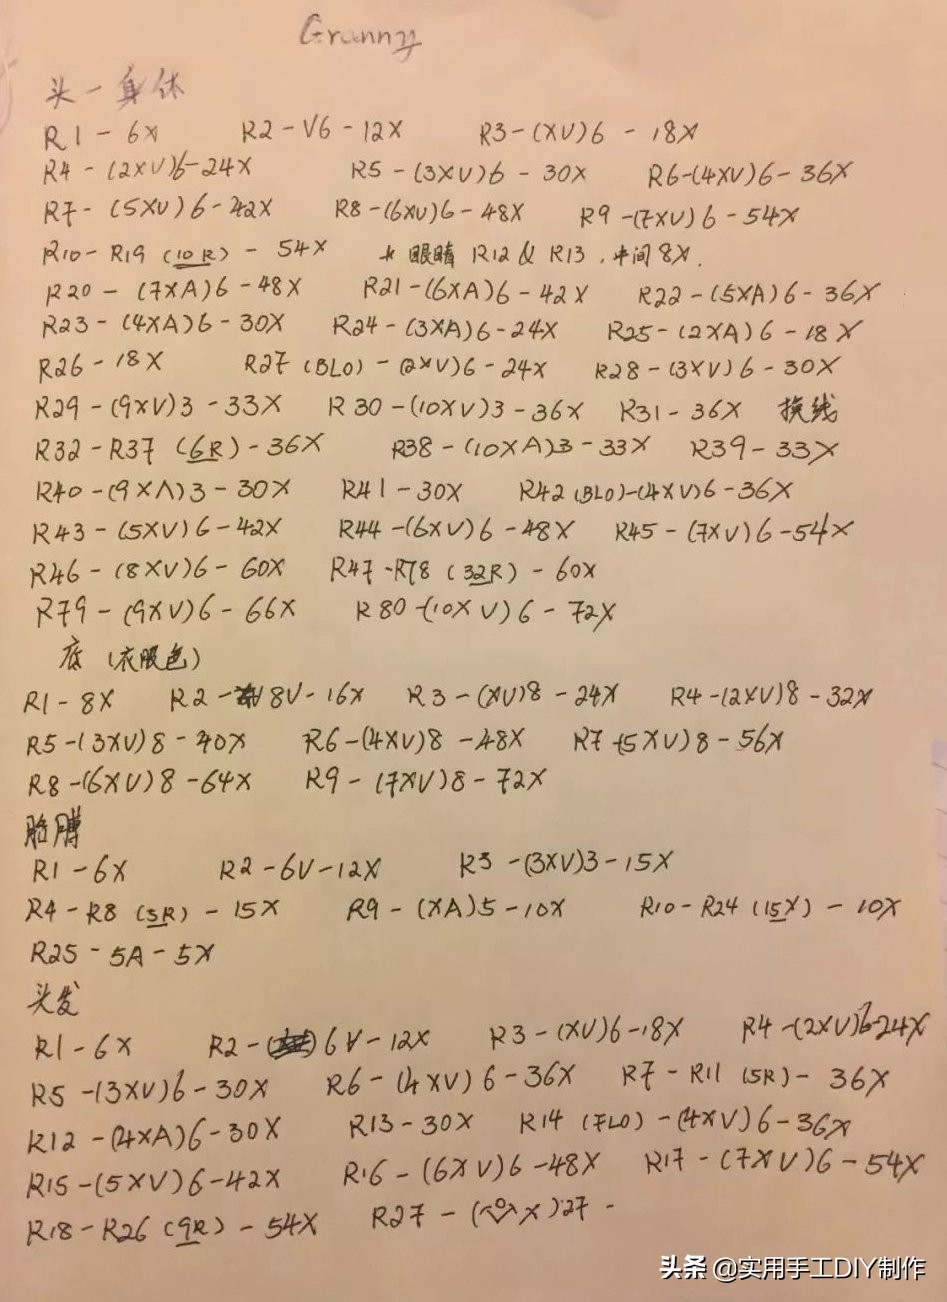 Granny
头-身体
R1 - 6X R2 - V6 - 12X R3 - (XV)6 - 18X
R4 - (2XV)6-24X R5 - (3XV)6 - 30X R6-(4XV)6 - 36X
R7 - (5XV)6 - 42X R8 - (6XV)6 - 48X R9 -(7XV)6 - 54X
R10 - R19 (10R) - 54X * 眼睛 R12 & R13, 中间 8X.
R20 - (7XA)6 - 48X R21 - (6XA)6 - 42X R22 - (5XA)6 - 36X
R23 - (4XA)6 - 30X R24 - (3XA)6 - 24X R25 - (2XA)6 - 18X
R26 - 18X R27 (BLO) - (2XV)6 - 24X R28 - (3XV)6 - 30X
R29 - (9XV)3 - 33X R30 - (10XV)3 - 36X R31 - 36X 换线
R32 - R37 (6R) - 36X R38 - (10XA)3 - 33X R39 - 33X
R40 - (9XA)3 - 30X R41 - 30X R42 (BLO)-(4XV)6 - 36X
R43 - (5XV)6 - 42X R44 - (6XV)6 - 48X R45 - (7XV)6 - 54X
R46 - (8XV)6 - 60X R47 - R78 (32R) - 60X
R79 - (9XV)6 - 66X R80 - (10XV)6 - 72X
底 (衣服色)
R1 - 8X R2 - 8V - 16X R3 - (XV)8 - 24X R4 - (2XV)8 - 32X
R5 - (3XV)8 - 40X R6 - (4XV)8 - 48X R7 - (5XV)8 - 56X
R8 - (6XV)8 - 64X R9 - (7XV)8 - 72X
胳膊
R1 - 6X R2 - 6V - 12X R3 - (3XV)3 - 15X
R4 - R8 (5R) - 15X R9 - (XA)5 - 10X R10 - R24 (15X) - 10X
R25 - 5A - 5X
头发
R1 - 6X R2 - 6V - 12X R3 - (XV)6 - 18X R4 - (2XV)6-24X
R5 - (3XV)6 - 30X R6 - (4XV)6 - 36X R7 - R11 (5R) - 36X
R12 - (4XA)6 - 30X R13 - 30X R14 (FLO) - (4XV)6 - 36X
R15 - (5XV)6 - 42X R16 - (6XV)6 - 48X R17 - (7XV)6 - 54X
R18 - R26 (9R) - 54X R27 - ( X )27 -
头条 @实用手工DIY制作